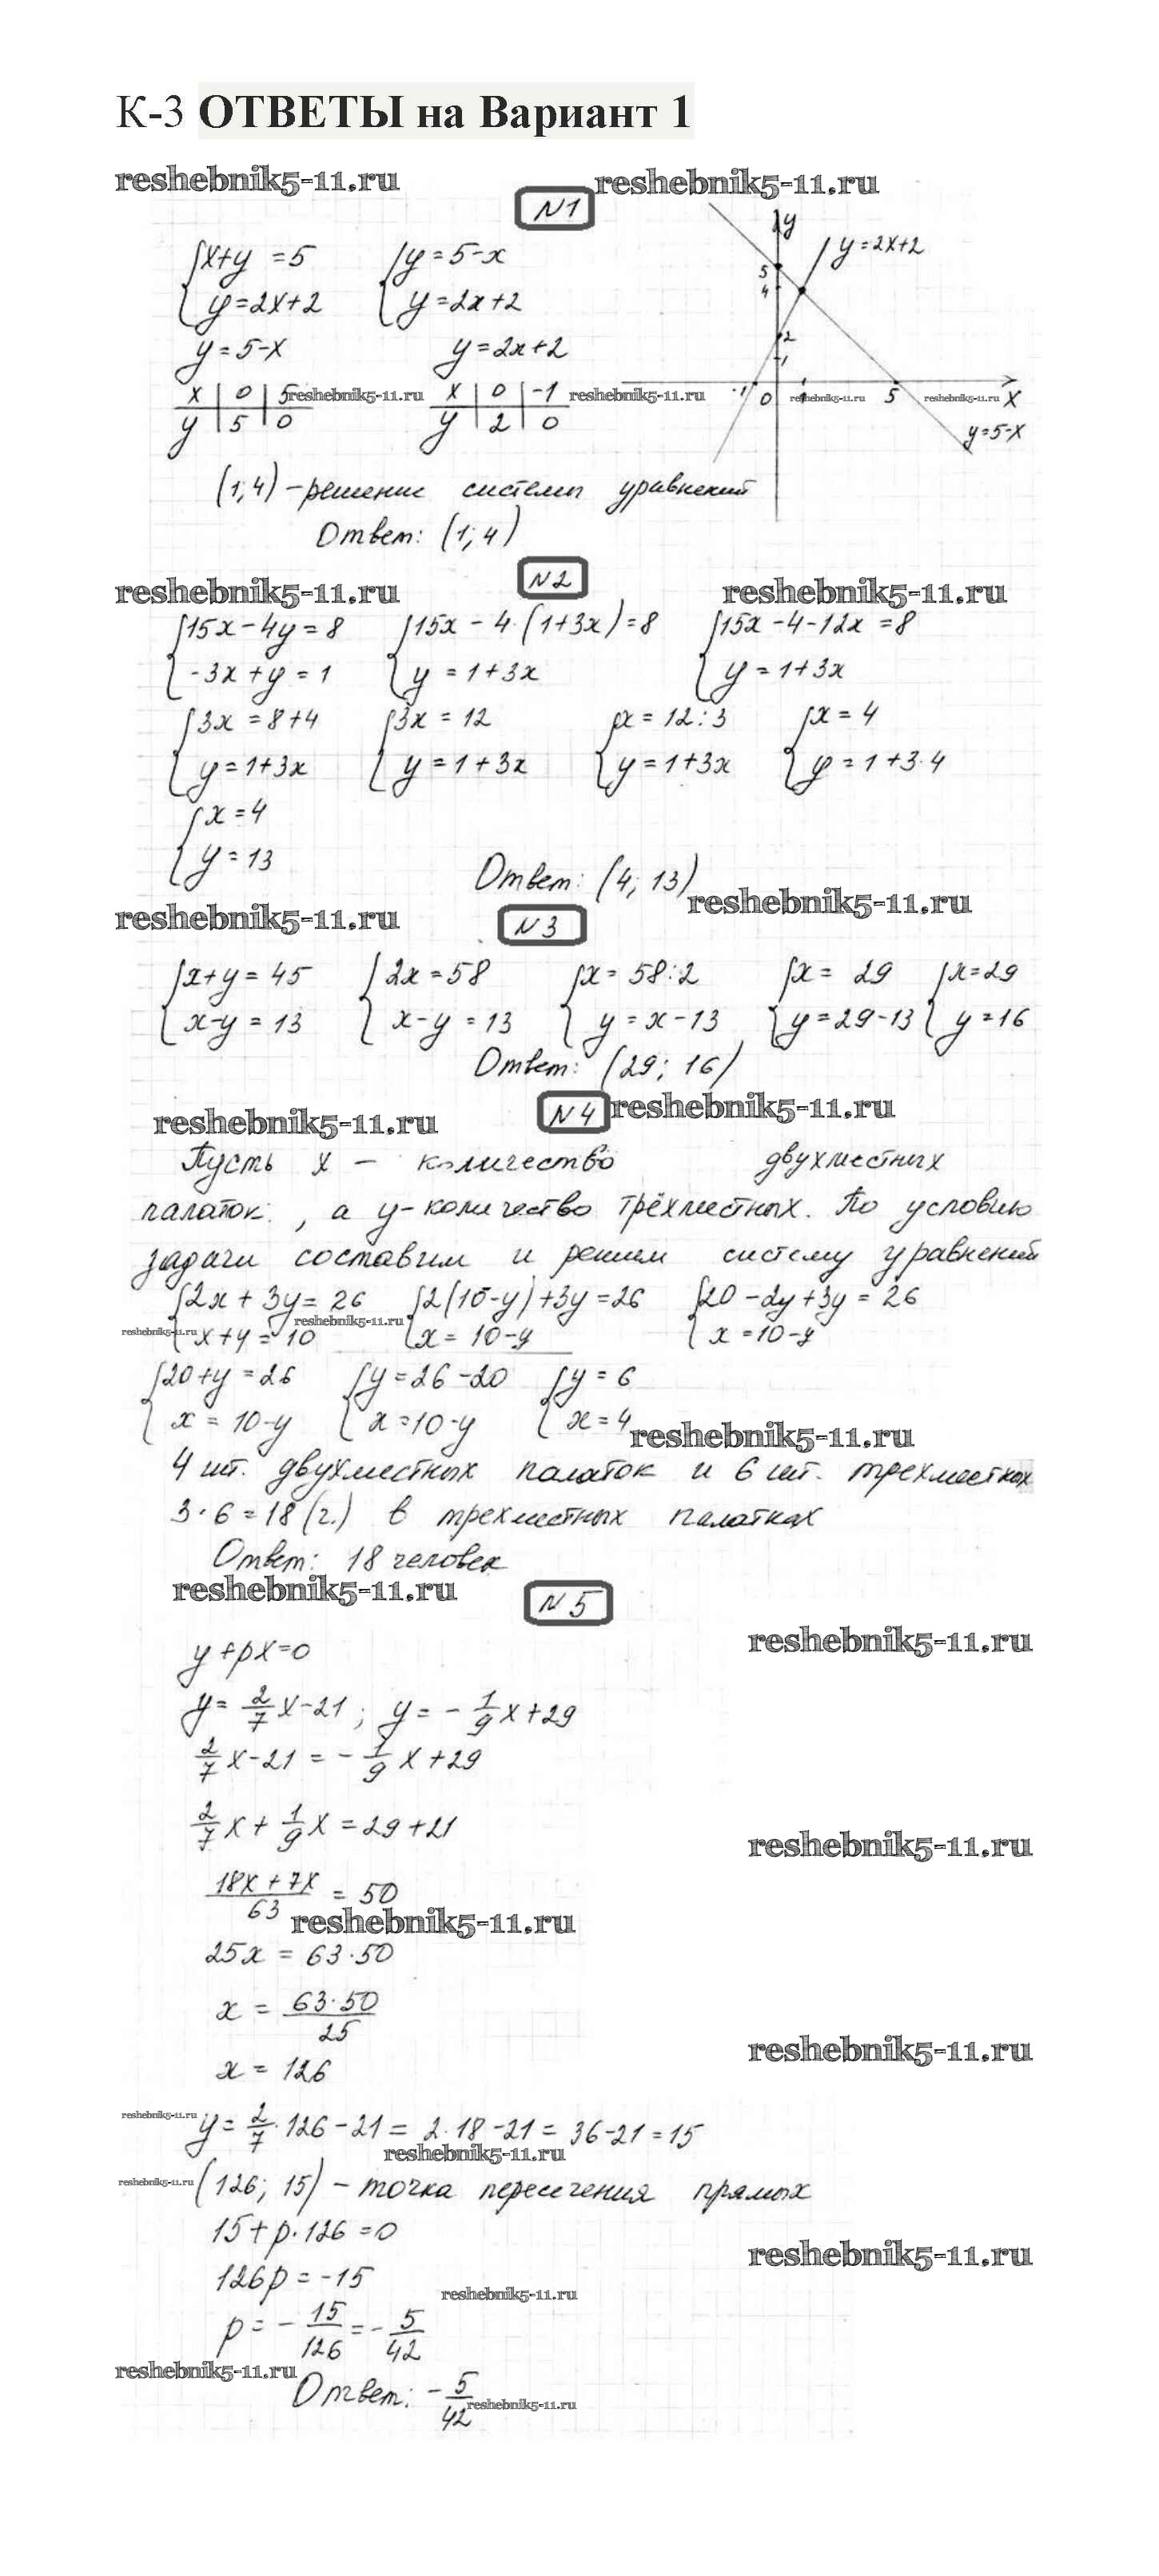 К-3 ОТВЕТЫ на Вариант 1
reshebnik5-11.ru
reshebnik5-11.ru
N1
{x+y =5 {y=5-x
y=2x+2 y=2x+2
y=5-x y=2x+2
x | 0 | 5 reshebnik5-11.ru x | 0 | -1 reshebnik5-11.ru
y | 5 | 0 y | 2 | 0
y
y=2x+2
5
4
2
1
-1 0 reshebnik5-11.ru 5 reshebnik5-11.ru x
y=5-x
(1;4) - решение системы уравнений
Ответ: (1; 4)
N2
reshebnik5-11.ru reshebnik5-11.ru
{15x-4y=8 {15x-4·(1+3x)=8 {15x-4-12x=8
-3x+y=1 y=1+3x y=1+3x
{3x=8+4 {3x=12 {x=12:3 {x=4
y=1+3x y=1+3x y=1+3x y=1+3·4
{x=4
y=13
Ответ: (4; 13)
reshebnik5-11.ru N3 reshebnik5-11.ru
{x+y=45 {2x=58 {x=58:2 {x=29 {x=29
x-y=13 x-y=13 y=x-13 y=29-13 y=16
Ответ: (29; 16)
reshebnik5-11.ru N4 reshebnik5-11.ru
Пусть x - количество двухместных
палаток, а y-количество трёхместных. По условию
задачи составим и решим систему уравнений
{2x+3y=26 {2(10-y)+3y=26 {20-2y+3y=26
reshebnik5-11.ru
reshebnik5-11.ru x+y=10 x=10-y x=10-y
{20+y=26 {y=26-20 {y=6
x=10-y x=10-y x=4
reshebnik5-11.ru
4 шт. двухместных палаток и 6 шт. трехместных
3·6=18(ч.) в трехместных палатках
Ответ: 18 человек
reshebnik5-11.ru N5
reshebnik5-11.ru
y+px=0
y=2/7x-21; y=-1/9x+29
2/7x-21=-1/9x+29
2/7x+1/9x=29+21
reshebnik5-11.ru
18x+7x/63=50
reshebnik5-11.ru
25x=63·50
x=63·50/25
reshebnik5-11.ru
x=126
reshebnik5-11.ru y=2/7·126-21=2·18-21=36-21=15
reshebnik5-11.ru
reshebnik5-11.ru (126; 15) - точка пересечения прямых
15+p·126=0
reshebnik5-11.ru
126p=-15
reshebnik5-11.ru
p=-15/126=-5/42
reshebnik5-11.ru
Ответ: -5/42
reshebnik5-11.ru